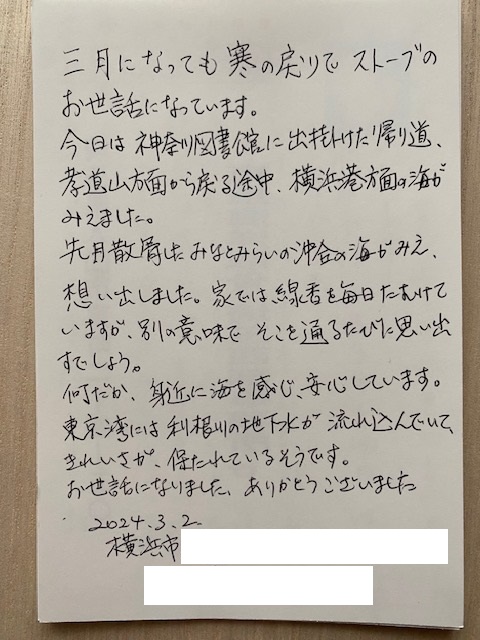 三月になっても寒の戻りで ストーブの
お世話になっています。
今日は 神奈川図書館に 出掛けた帰り道、
孝道山方面から戻る途中、横浜港方面の海が
みえました。
先月散骨した みなとみらいの沖合の海がみえ、
想い出しました。家では線香を毎日たむけて
いますが、別の意味で そこを通るたびに思い出
すでしょう。
何だか、身近に海を感じ、安心しています。
東京湾には利根川の地下水が 流れ込んでいて、
きれいさが、保たれているそうです。
お世話になりました、ありがとうございました
2024.3.2
横浜市